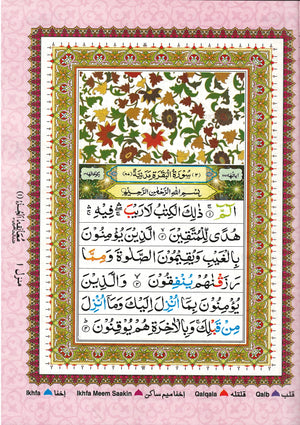 سُوْرَةُ الْبَقَرَةِ مَدَنِيَّةٌ
بِسْمِ اللهِ الرَّحْمٰنِ الرَّحِيْمِ
الٓمّٓ ۚ ذٰلِكَ الْكِتٰبُ لَا رَيْبَ ۛ فِيْهِ ۛ
هُدًى لِّلْمُتَّقِيْنَ ۙ الَّذِيْنَ يُؤْمِنُوْنَ
بِالْغَيْبِ وَيُقِيْمُوْنَ الصَّلٰوةَ وَمِمَّا
رَزَقْنٰهُمْ يُنْفِقُوْنَ ۙ وَالَّذِيْنَ
يُؤْمِنُوْنَ بِمَآ اُنْزِلَ اِلَيْكَ وَمَآ اُنْزِلَ
مِنْ قَبْلِكَ ۚ وَبِالْاٰخِرَةِ هُمْ يُوْقِنُوْنَ ؕ
منزل ١
Ikhfa اخفا Ikhfa Meem Saakin اخفا میم ساکن Qalqala قلقله Qalb قلب